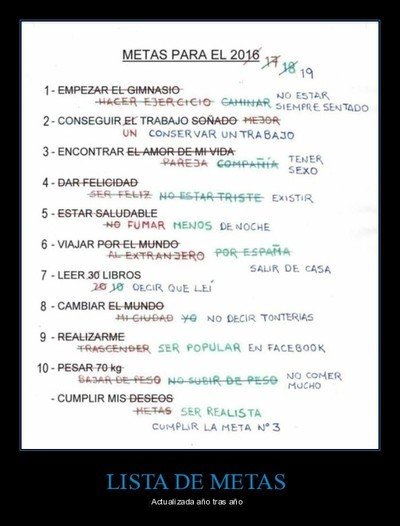 METAS PARA EL 2016 17 18 19
1 - EMPEZAR EL GIMNASIO NO ESTAR
HACER EJERCICIO CAMINAR SIEMPRE SENTADO
2 - CONSEGUIR EL TRABAJO SOÑADO MEJOR
UN CONSERVAR UN TRABAJO
3 - ENCONTRAR EL AMOR DE MI VIDA TENER
PAREJA COMPAÑÍA SEXO
4 - DAR FELICIDAD
SER FELIZ NO ESTAR TRISTE EXISTIR
5 - ESTAR SALUDABLE
NO FUMAR MENOS DE NOCHE
6 - VIAJAR POR EL MUNDO
AL EXTRANJERO POR ESPAÑA
SALIR DE CASA
7 - LEER 30 LIBROS
20 10 DECIR QUE LEÍ
8 - CAMBIAR EL MUNDO
MI CIUDAD YO NO DECIR TONTERIAS
9 - REALIZARME
TRASCENDER SER POPULAR EN FACEBOOK
10 - PESAR 70 kg NO COMER
BAJAR DE PESO NO SUBIR DE PESO MUCHO
- CUMPLIR MIS DESEOS
METAS SER REALISTA
CUMPLIR LA META Nº 3
LISTA DE METAS
Actualizada año tras año